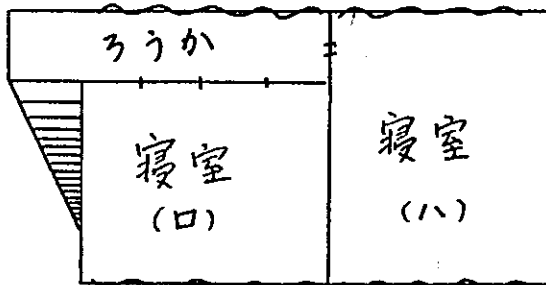 ろうか
寝室
(ロ)
寝室
(ハ)